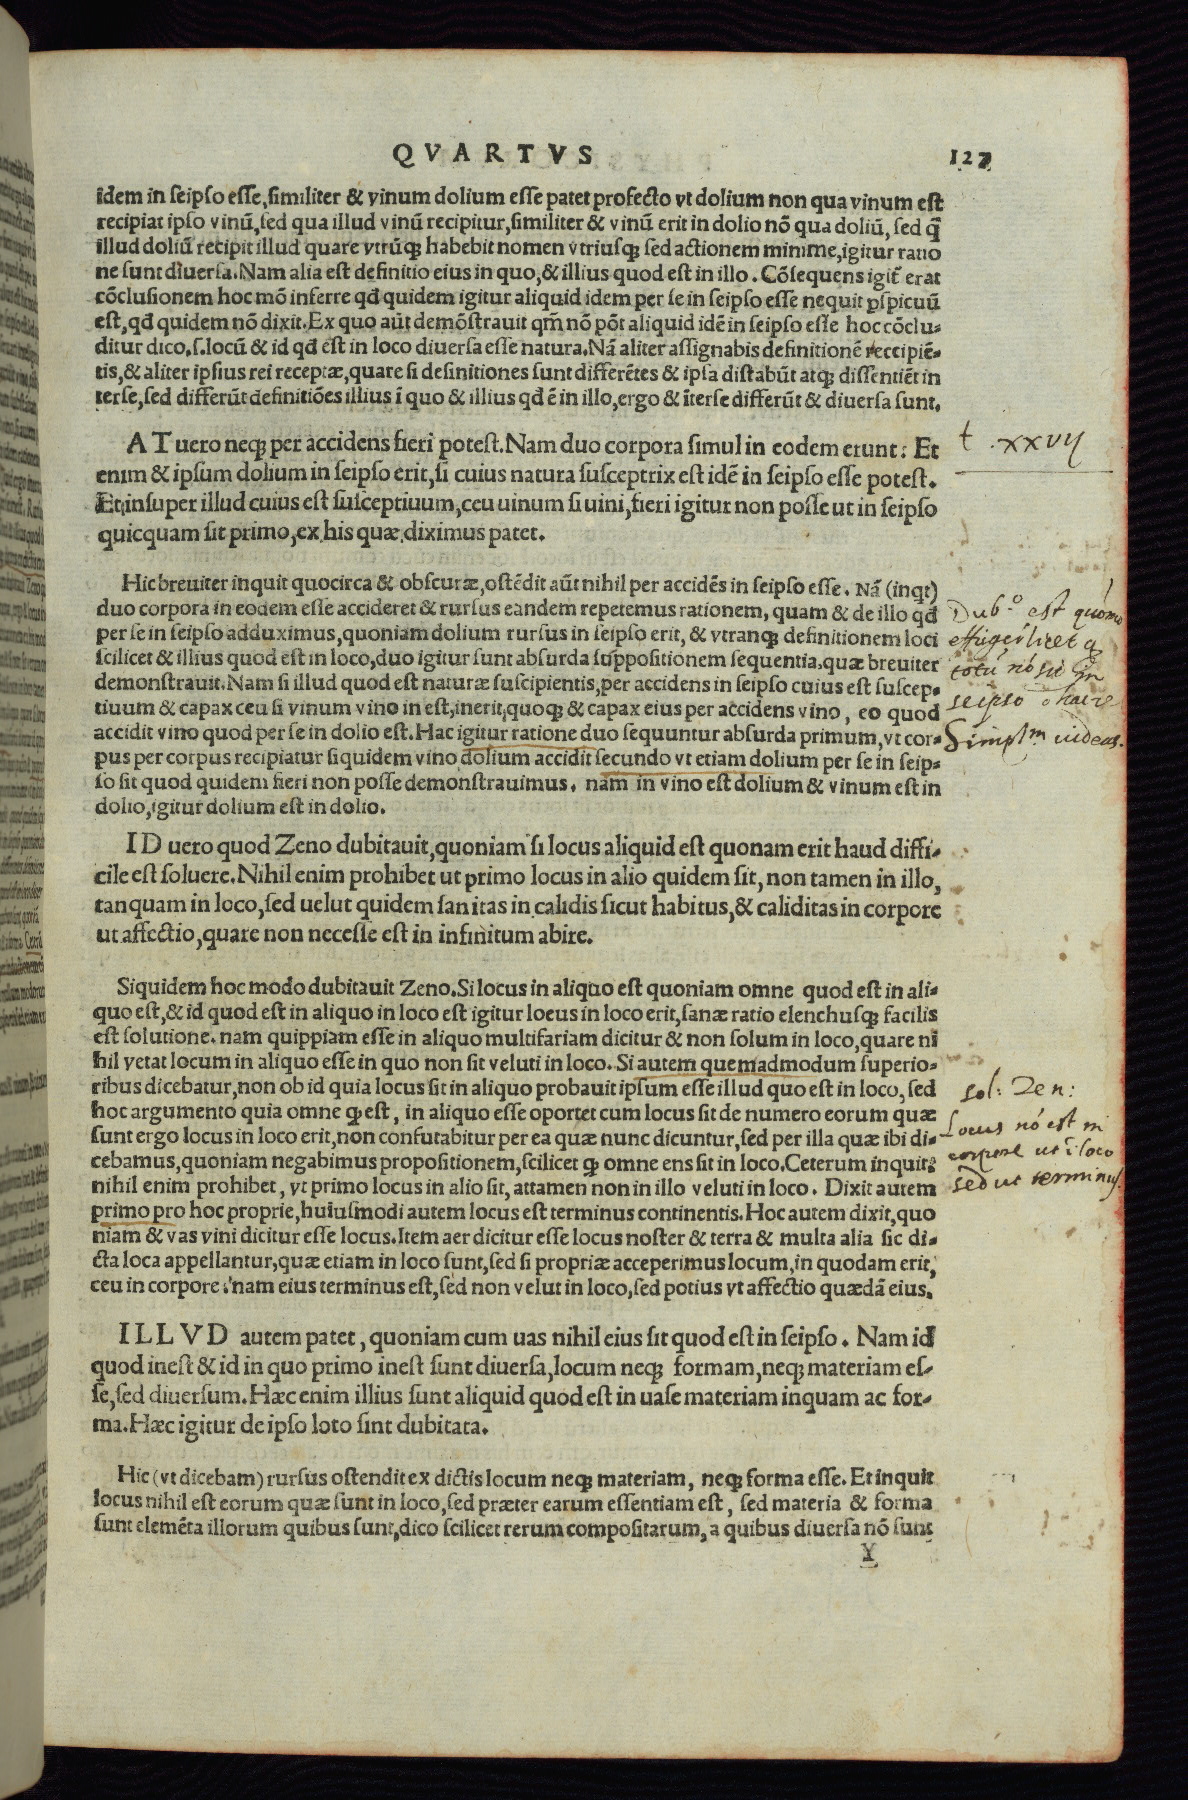 QVARTVS 127
idem in seipso esse, similiter & vinum dolium esse patet profecto vt dolium non qua vinum est
recipiat ipso vinū, sed qua illud vinū recipitur, similiter & vinū erit in dolio nō qua doliū, sed q̄
illud doliū recipit illud quare vtrūq; habebit nomen vtriusq; sed actionem minime, igitur ratio
ne sunt diuersa. Nam alia est definitio eius in quo, & illius quod est in illo. Cōsequens igit̄ erat
cōclusionem hoc mō inferre qđ quidem igitur aliquid idem per se in seipso esse nequit ꝑspicuū
est, qđ quidem nō dixit. Ex quo aūt demōstrauit qm̄ nō pōt aliquid idē in seipso esse hoc cōclu-
ditur dico .s. locū & id qđ est in loco diuersa esse natura. Nā aliter assignabis definitionē reccipiē-
tis, & aliter ipsius rei receptæ, quare si definitiones sunt differētes & ipsa distabūt atq; dissentiēt in
terse, sed differūt definitiōes illius ī quo & illius qđ ē in illo, ergo & īterse differūt & diuersa sunt.
AT uero neq; per accidens fieri potest. Nam duo corpora simul in eodem erunt: Et
t. xxvij
enim & ipsum dolium in seipso erit, si cuius natura susceptrix est idē in seipso esse potest.
Et insuper illud cuius est susceptiuum, ceu uinum si uini, fieri igitur non posse ut in seipso
quicquam sit primo, ex his quæ diximus patet.
Hic breuiter inquit quocirca & obscuræ, ostēdit aūt nihil per accidēs in seipso esse. Nā (inqt)
duo corpora in eodem esse accideret & rursus eandem repetemus rationem, quam & de illo qđ
Dub.o est quomo
per se in seipso adduximus, quoniam dolium rursus in seipso erit, & vtranq; definitionem loci
scilicet & illius quod est in loco, duo igitur sunt absurda suppositionem sequentia. quæ breuiter
totū nō sit in
demonstrauit. Nam si illud quod est naturæ suscipientis, per accidens in seipso cuius est suscep-
seipso
tiuum & capax ceu si vinum vino in est, inerit, quoq; & capax eius per accidens vino, eo quod
accidit vino quod per se in dolio est. Hac igitur ratione duo sequuntur absurda primum, vt cor-
Simplm uideas.
pus per corpus recipiatur siquidem vino dolium accidit secundo vt etiam dolium per se in seip-
so sit quod quidem fieri non posse demonstrauimus. nam in vino est dolium & vinum est in
dolio, igitur dolium est in dolio.
ID uero quod Zeno dubitauit, quoniam si locus aliquid est quonam erit haud diffi-
cile est soluere. Nihil enim prohibet ut primo locus in alio quidem sit, non tamen in illo,
tanquam in loco, sed uelut quidem sanitas in calidis sicut habitus, & caliditas in corpore
ut affectio, quare non necesse est in infinitum abire.
Siquidem hoc modo dubitauit Zeno. Si locus in aliquo est quoniam omne quod est in ali-
quo est, & id quod est in aliquo in loco est igitur locus in loco erit, sanæ ratio elenchusq; facilis
est solutione. nam quippiam esse in aliquo multifariam dicitur & non solum in loco, quare ni
hil vetat locum in aliquo esse in quo non sit veluti in loco. Si autem quemadmodum superio-
ribus dicebatur, non ob id quia locus sit in aliquo probauit ipsum esse illud quo est in loco, sed
sol: Zen:
hoc argumento quia omne qꝫ est, in aliquo esse oportet cum locus sit de numero eorum quæ
Locus nō est in
sunt ergo locus in loco erit, non confutabitur per ea quæ nunc dicuntur, sed per illa quæ ibi di-
corpore ut ī loco
cebamus, quoniam negabimus propositionem, scilicet qꝫ omne ens sit in loco. Ceterum inquit:
sed ut terminus.
nihil enim prohibet, vt primo locus in alio sit, attamen non in illo veluti in loco. Dixit autem
primo pro hoc proprie, huiusmodi autem locus est terminus continentis. Hoc autem dixit, quo
niam & vas vini dicitur esse locus. Item aer dicitur esse locus noster & terra & multa alia sic di-
cta loca appellantur, quæ etiam in loco sunt, sed si propriæ acceperimus locum, in quodam erit,
ceu in corpore: nam eius terminus est, sed non velut in loco, sed potius vt affectio quædā eius.
ILLVD autem patet, quoniam cum uas nihil eius sit quod est in seipso. Nam id
quod inest & id in quo primo inest sunt diuersa, locum neq; formam, neq; materiam es-
se, sed diuersum. Hæc enim illius sunt aliquid quod est in uase materiam inquam ac for-
ma. Hæc igitur de ipso loto sint dubitata.
Hic (vt dicebam) rursus ostendit ex dictis locum neq; materiam, neq; forma esse. Et inquit
locus nihil est eorum quæ sunt in loco, sed præter earum essentiam est, sed materia & forma
sunt elemēta illorum quibus sunt, dico scilicet rerum compositarum, a quibus diuersa nō sunt
Y